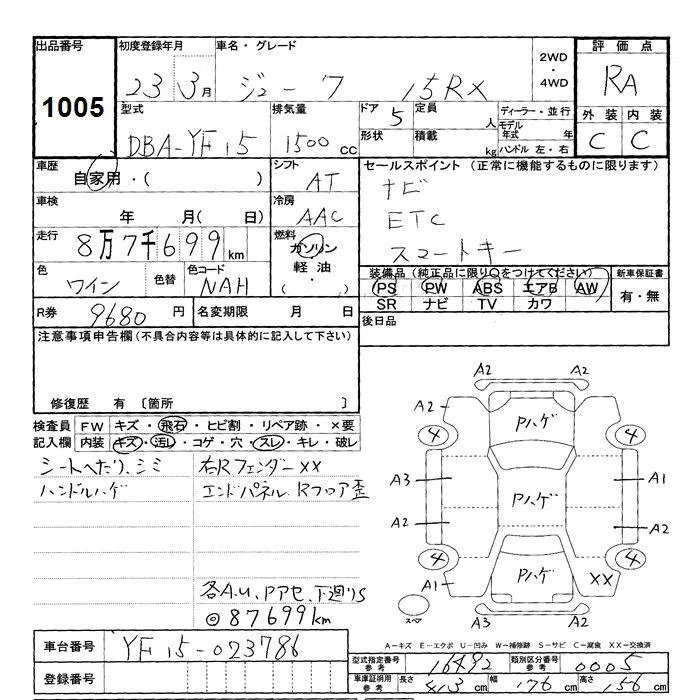 出品番号 初度登録年月 車名・グレード 2WD・4WD 評価点
1005 23 3月 ジューク 15RX RA
型式 排気量 ドア 5 定員 人 ディーラー・並行 外装 内装
DBA-YF15 1500cc 形状 積載 kg モデル年式 年 ハンドル 左・右 C C
車歴 自家用・( ) シフト AT セールスポイント(正常に機能するものに限ります)
車検 年 月(日) 冷房 AAC ナビ
ETC
スマートキー
走行 8万7千699km 燃料 ガソリン 軽油・( )
装備品(純正品に限り○をつけてください) 新車保証書
色 ワイン 色替 色コード NAH PS PW ABS エアB AW 有・無
SR ナビ TV カワ
R券 9680円 名変期限 月 日 後日品
注意事項申告欄(不具合内容等は具体的に記入して下さい)
修復歴 有〔箇所 〕
検査員記入欄 FW キズ・飛石・ヒビ割・リペア跡・×要
内装 キズ・汚レ・コゲ・穴・スレ・キレ・破レ
シートへたり、シミ 右Rフェンダー××
ハンドルハゲ エンドパネル、Rフロア歪
各A.U、Pアセ、下廻りS
◎87699km
A2 A2
A2 Pハゲ
4 4
A3 Pハゲ A1
A2 A2
4 4
A1 Pハゲ ××
スペア A3 A2
A-キズ E-エクボ U-凹み W-補修跡 S-サビ C-腐食 XX-交換済
車台番号 YF15-023786
型式指定番号 参考 16492 類別区分番号 参考 0005
登録番号
車庫証明用 参考 長さ 413cm 幅 176cm 高さ 156cm